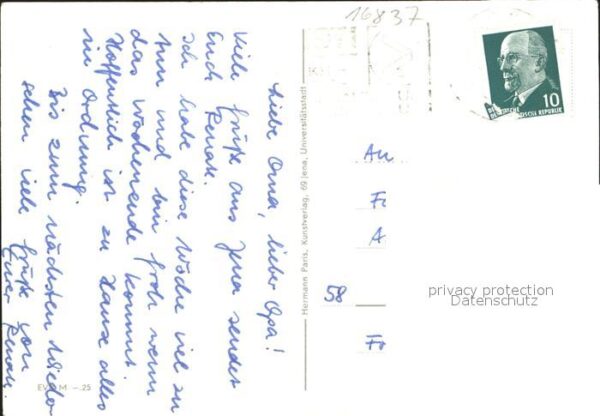 16837
Liebe Oma, lieber Opa!
Viele Grüße aus Jena sendet
Euch Renate.
Ich habe diese Woche viel zu
tun und bin froh wenn
das Wochenende kommt.
Hoffentlich ist zu Hause alles
in Ordnung.
Bis zum nächsten Wieder-
sehen viele Grüße von
Eurer Renate.
EVP M -.25
Hermann Paris, Kunstverlag, 69 Jena, Universitätsstadt
10
DEUTSCHE DEMOKRATISCHE REPUBLIK
An
F
A
58
privacy protection
Datenschutz